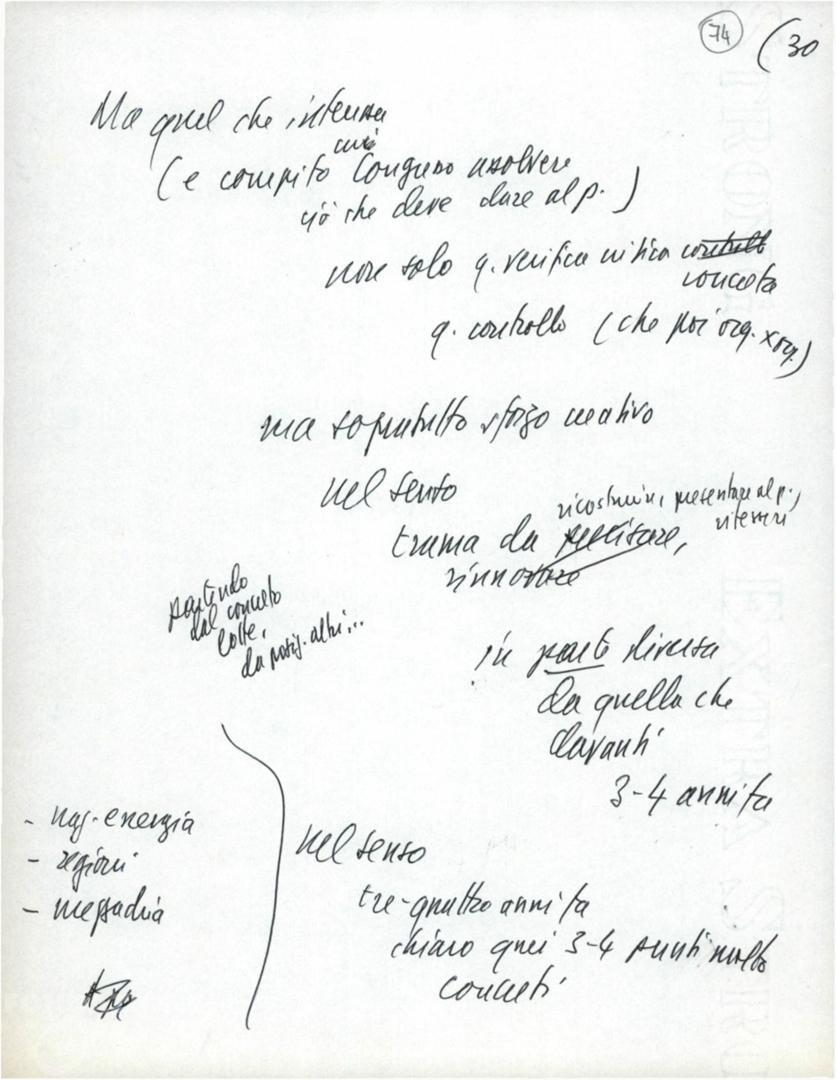 74
(30
Ma quel che interessa
(e compito Congresso assolvere
ciò che deve dare al p.)
non solo q. verifica critica controllo
concreta
q. controllo (che poi org. x org.)
ma sopratutto sforzo creativo
nel senso
ricostruire, presentare al p.,
trama da precisare,
rinnovare
partendo
dal concreto
lotte,
da posiz. altri...
in parte diversa
da quella che
davanti
3-4 anni fa
- naz. energia
- regioni
- mezzadria
nel senso
tre-quattro anni fa
chiaro quei 3-4 punti molto
concreti